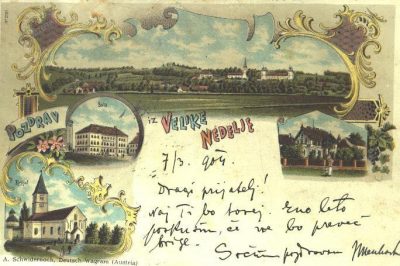 POZDRAV iz VELIKE NEDELJE
Šola
7/3. 904.
Dragi prijatelj!
Naj Ti bo torej. Eno leto
poskusim, če me bo preveč
Srčen pozdravom
A. Schwidernoch, Deutsch-Wagram (Austria)